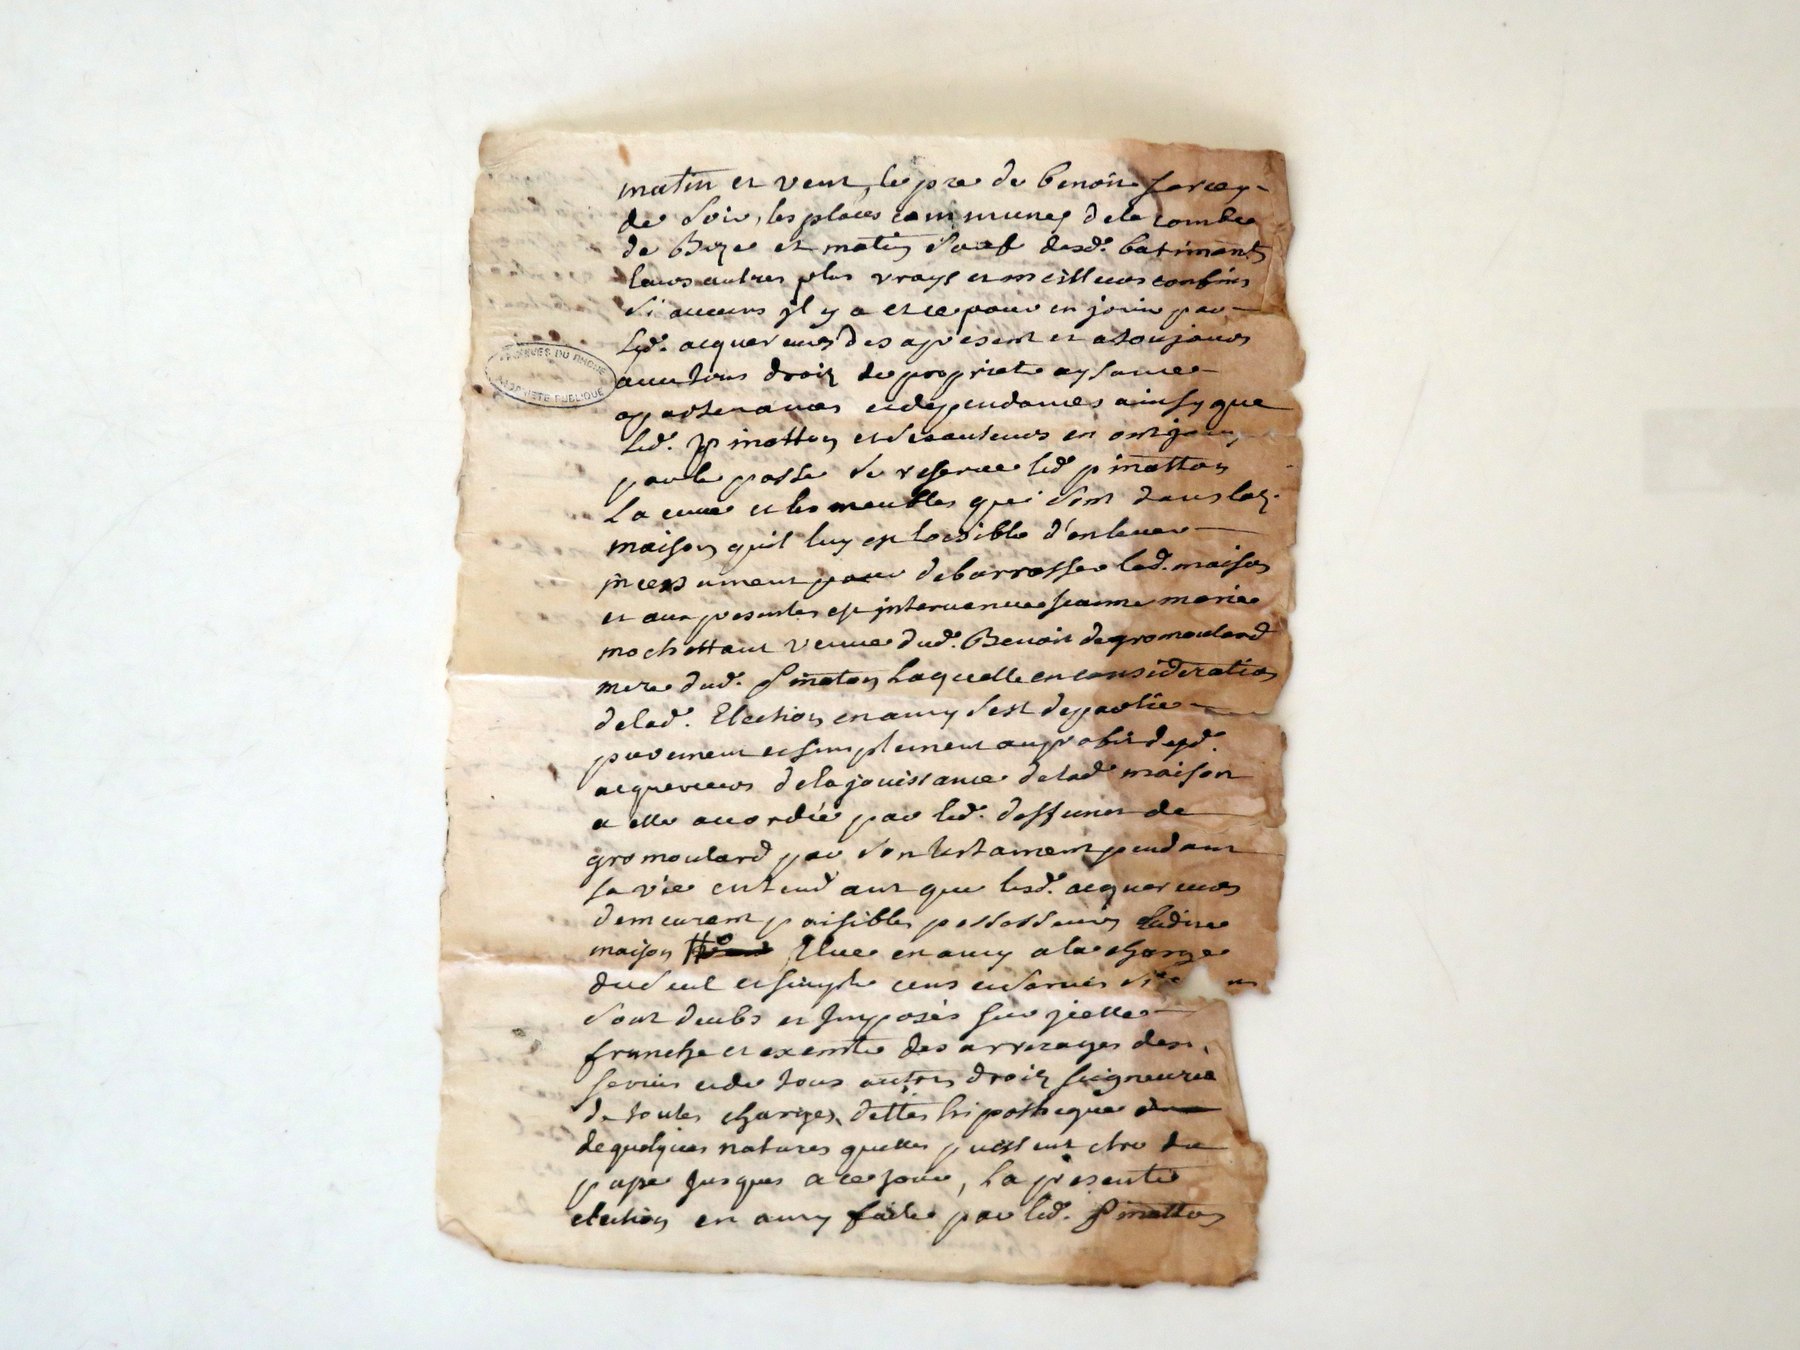 matin et vent, le pre de benoit farcey
de soir, les places communes de la combe
de Bize et matin sauf desd. batiments
leurs autres plus vrays et meilleurs confins
si aucuns jl y a et ce pour en jouir par
led. acquereurs des apresent et a toujours
avec tous droix de propriete aysance
apartenances et dependances ainsy que
led. pinatton et ses auteurs en ont jouy
par le passé se reserve led. pinatton
la cuve et les meubles qui sont dans lad.
maison quil luy est loisible d'enlever
incessament pour debarrasser lad. maison
et aux presentes est jntervenue jeanne marie
mochettant veuve dud. Benoit de gromoulard
mere dud. pinaton laquelle en consideration
de lad. Election en amy s'est departie
purement et simplement au profit desd.
acquereurs de la jouissance de lad. maison
a elle accordée par led. deffunct de
gromoulard par son testament pendant
sa vie entendant que lesd. acquereurs
demeurent paisibles possesseurs ladite
maison Elue en amy a la charge
du seul et simple cens et servis
sont deubs et jmposés sur jcelle
franche et exemte des arrerages des
servis et de tous autres droix seigneuria
de toutes charges, dettes hipotheque
de quelques natures quelles puissent etre du
passe jusques a ce jour, la presente
election en amy faite par led. pinatton
ARCHIVES DU RHONE
PROPRIETE PUBLIQUE